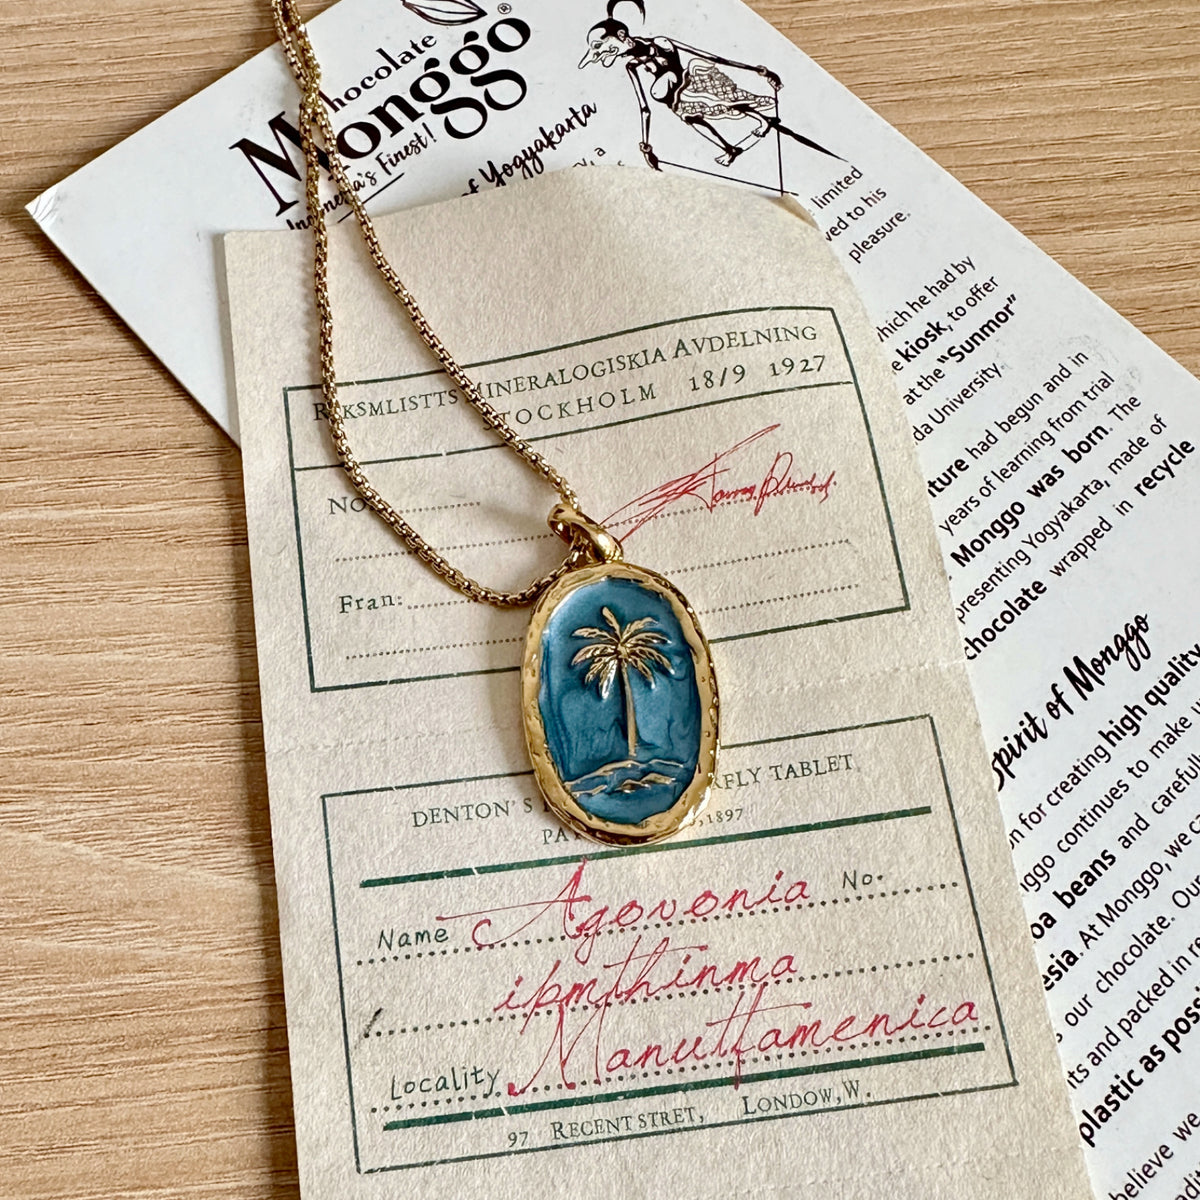 Chocolate
Monggo®
Indonesia's Finest!
of Yogyakarta
limited
ved to his
pleasure.
hich he had by
e kiosk, to offer
at the "Sunmor"
da University.
ture had begun and in
years of learning from trial
Monggo was born. The
presenting Yogyakarta, made of
chocolate wrapped in recycle
Spirit of Monggo
n for creating high quality
ggo continues to make
oa beans and carefull
esia. At Monggo, we ca
our chocolate. Our
ts and packed in re
plastic as poss
believe we
MINERALOGISKIA AVDELNING
STOCKHOLM 18/9 1927
No
Fran:
DENTON'S FLY TABLET
PA ,1897
Name Agovonia No.
ipmthinma
Locality Manuttamenica
97 RECENT STRET, LONDOW,W.